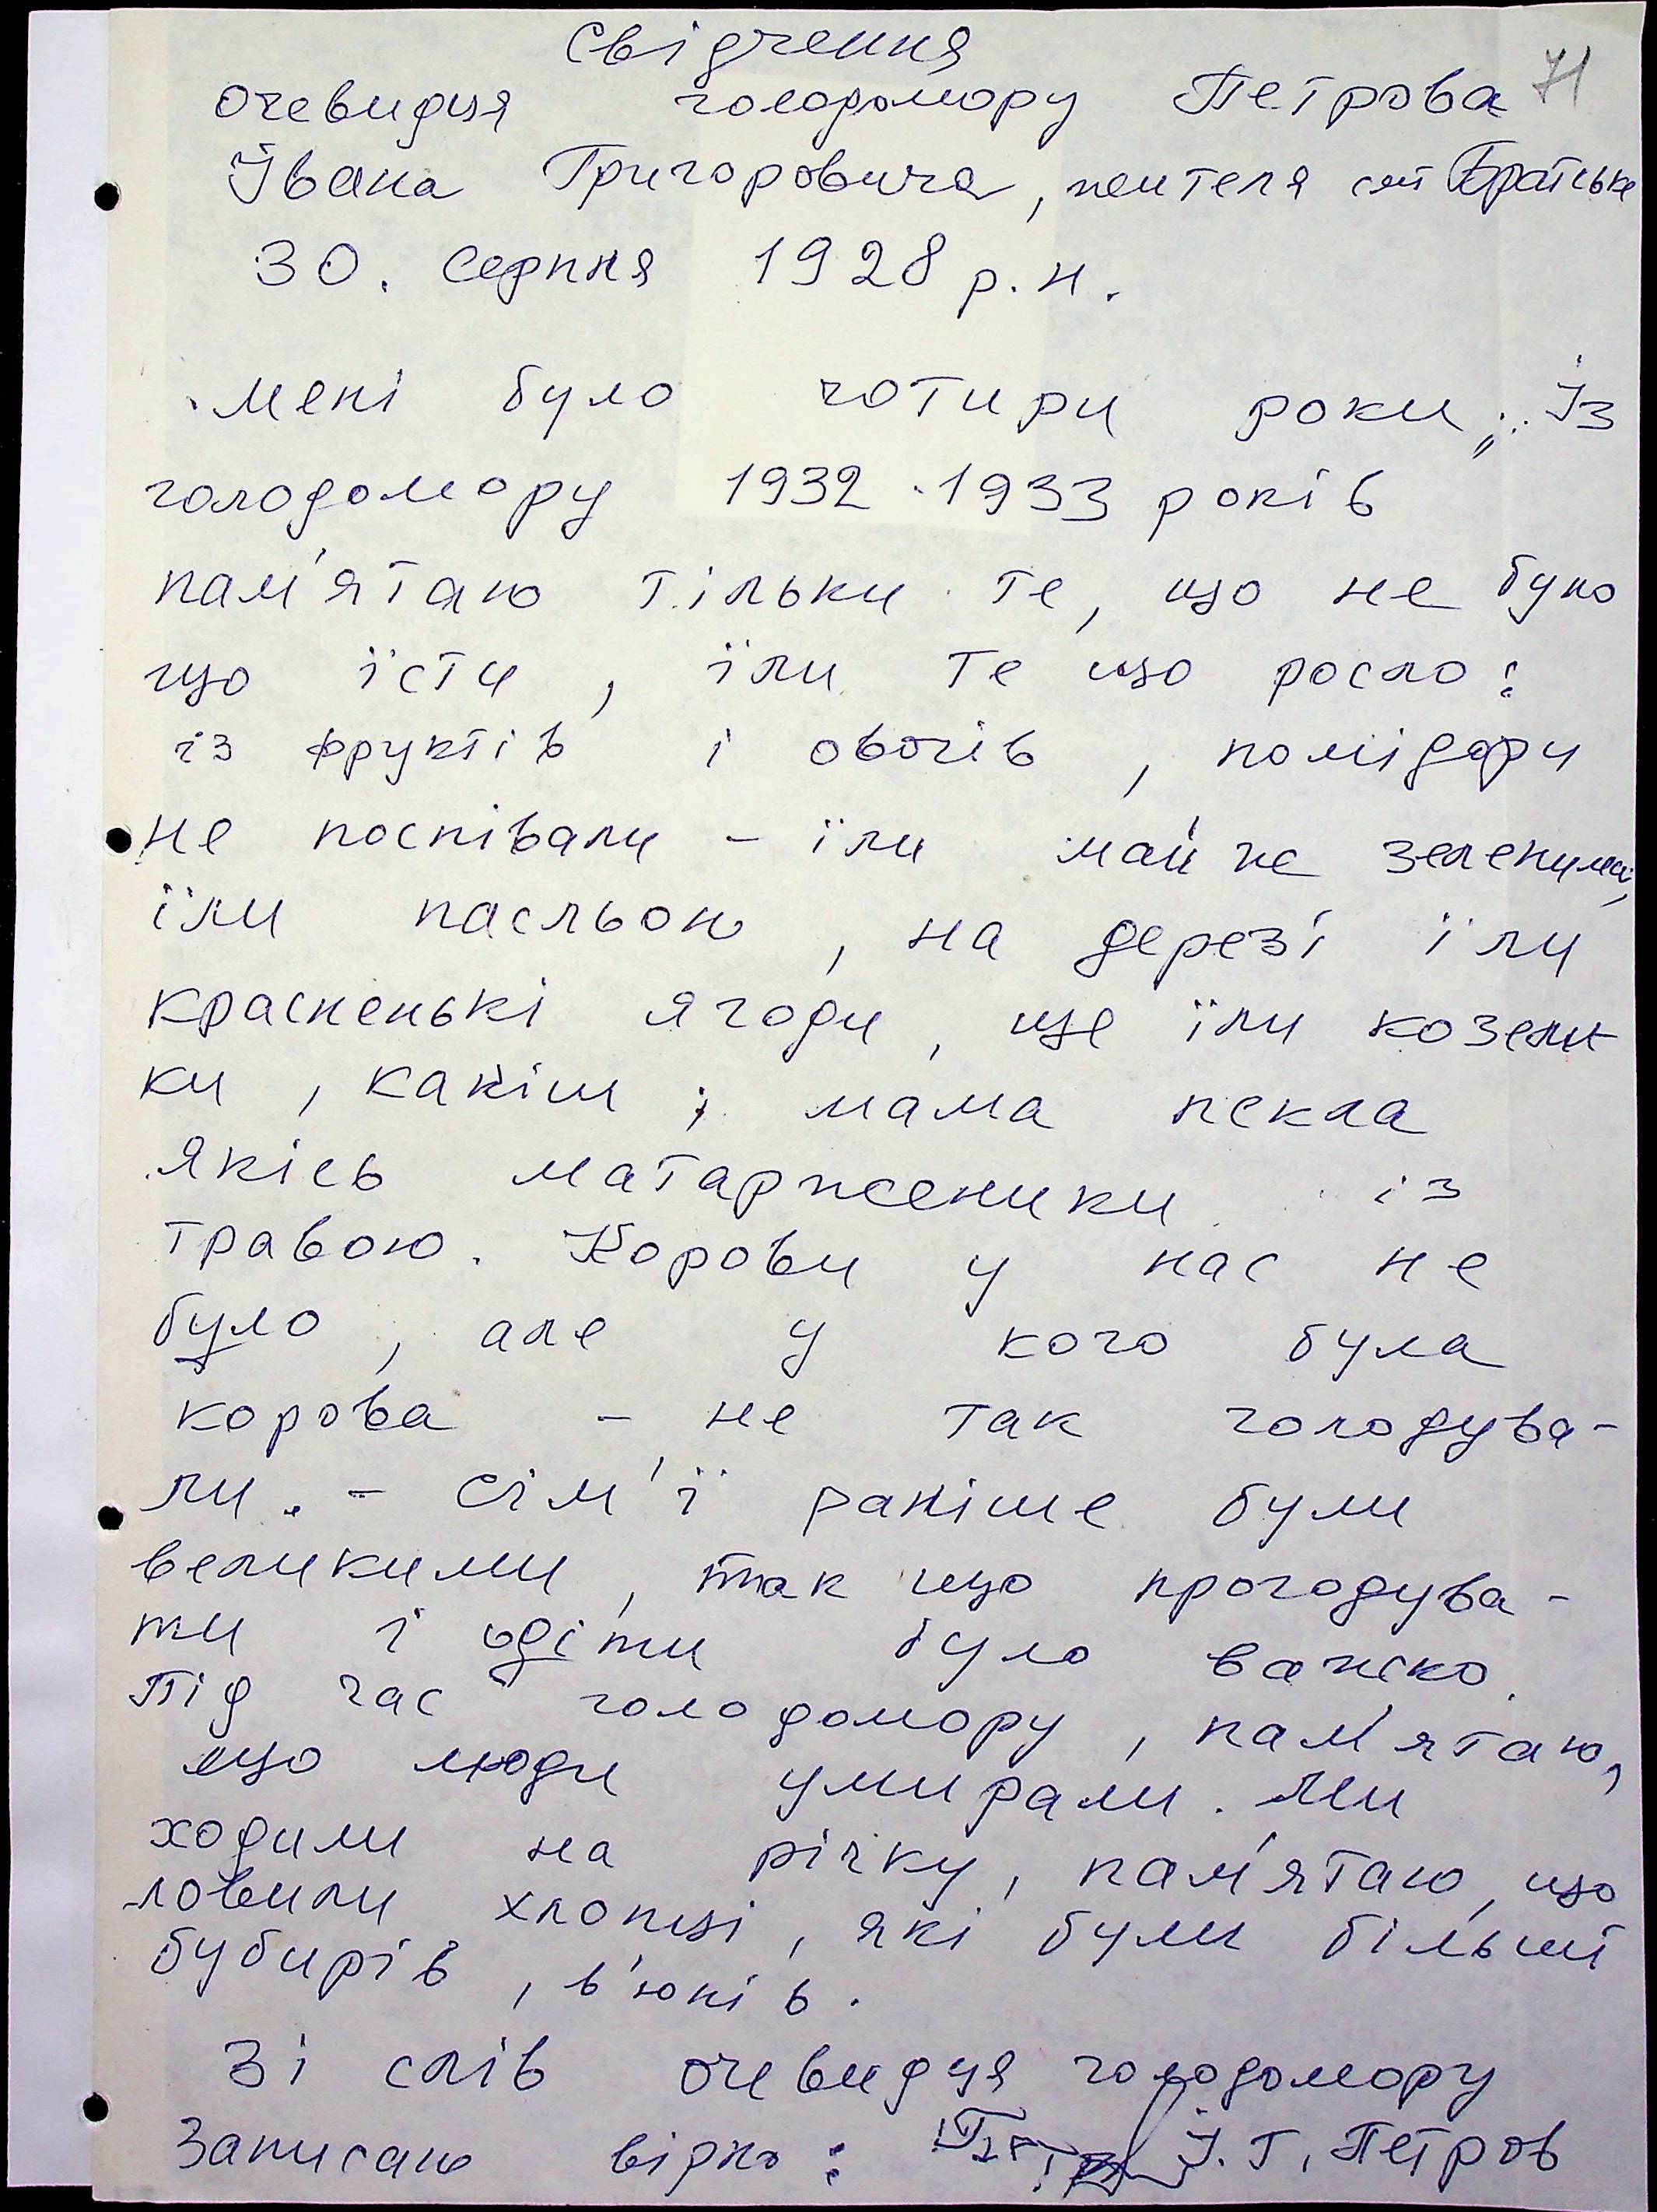 Свідчення
очевидця голодомору Петрова 71
Івана Григоровича, жителя смт Братське
30. Серпня 1928 р.н.
Мені було чотири роки. Із
голодомору 1932-1933 років
пам'ятаю тільки те, що не було
що їсти, їли те що росло:
із фруктів і овочів, помідори
не поспівали - їли майже зеленими,
їли пасльон, на дерезі їли
красненькі ягоди, ще їли козели-
ки, каліш; мама пекла
якісь матарженики із
травою. Корови у нас не
було, але у кого була
корова - не так голодува-
ли. - Сім'ї раніше були
великими, так що прогодува-
ти і одіти було важко.
Під час голодомору, пам'ятаю,
що люди умирали. Ми
ходили на річку, пам'ятаю, що
ловили хлопці, які були більші
бубирів, в'юнів.
Зі слів очевидця голодомору
Записано вірно: І.Г. Петров